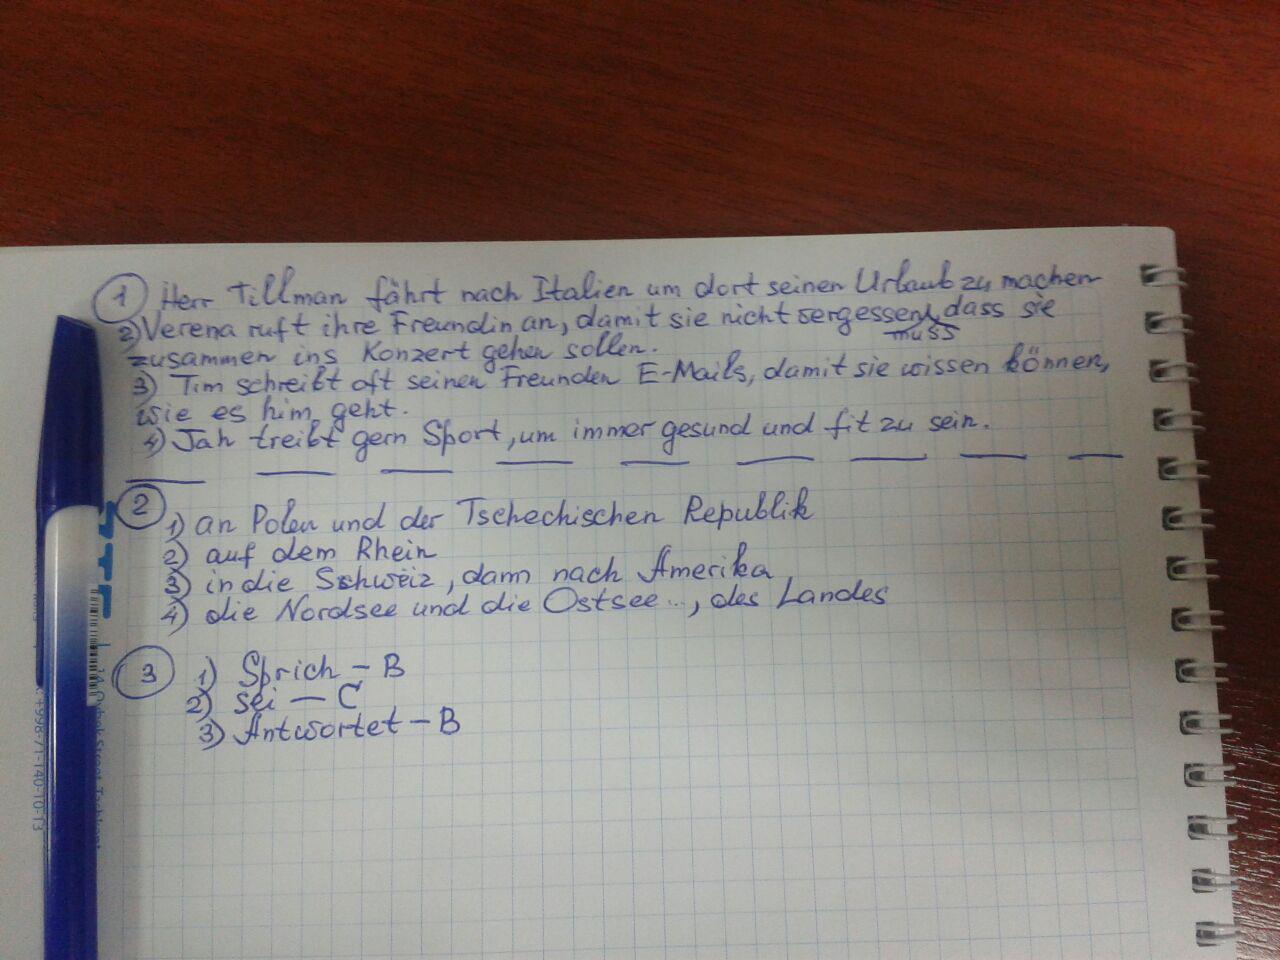 1 Herr Tillman fährt nach Italien um dort seinen Urlaub zu machen
2) Verena ruft ihre Freundin an, damit sie nicht vergessen muss, dass sie
zusammen ins Konzert gehen sollen.
3) Tim schreibt oft seinen Freunden E-Mails, damit sie wissen können,
wie es him geht.
4) Jah treibt gern Sport, um immer gesund und fit zu sein.
2
1) an Polen und der Tschechischen Republik
2) auf dem Rhein
3) in die Schweiz, dann nach Amerika
4) die Nordsee und die Ostsee..., des Landes
3
1) Sprich - B
2) sei - C
3) Antwortet - B
+998-71-140-10-13